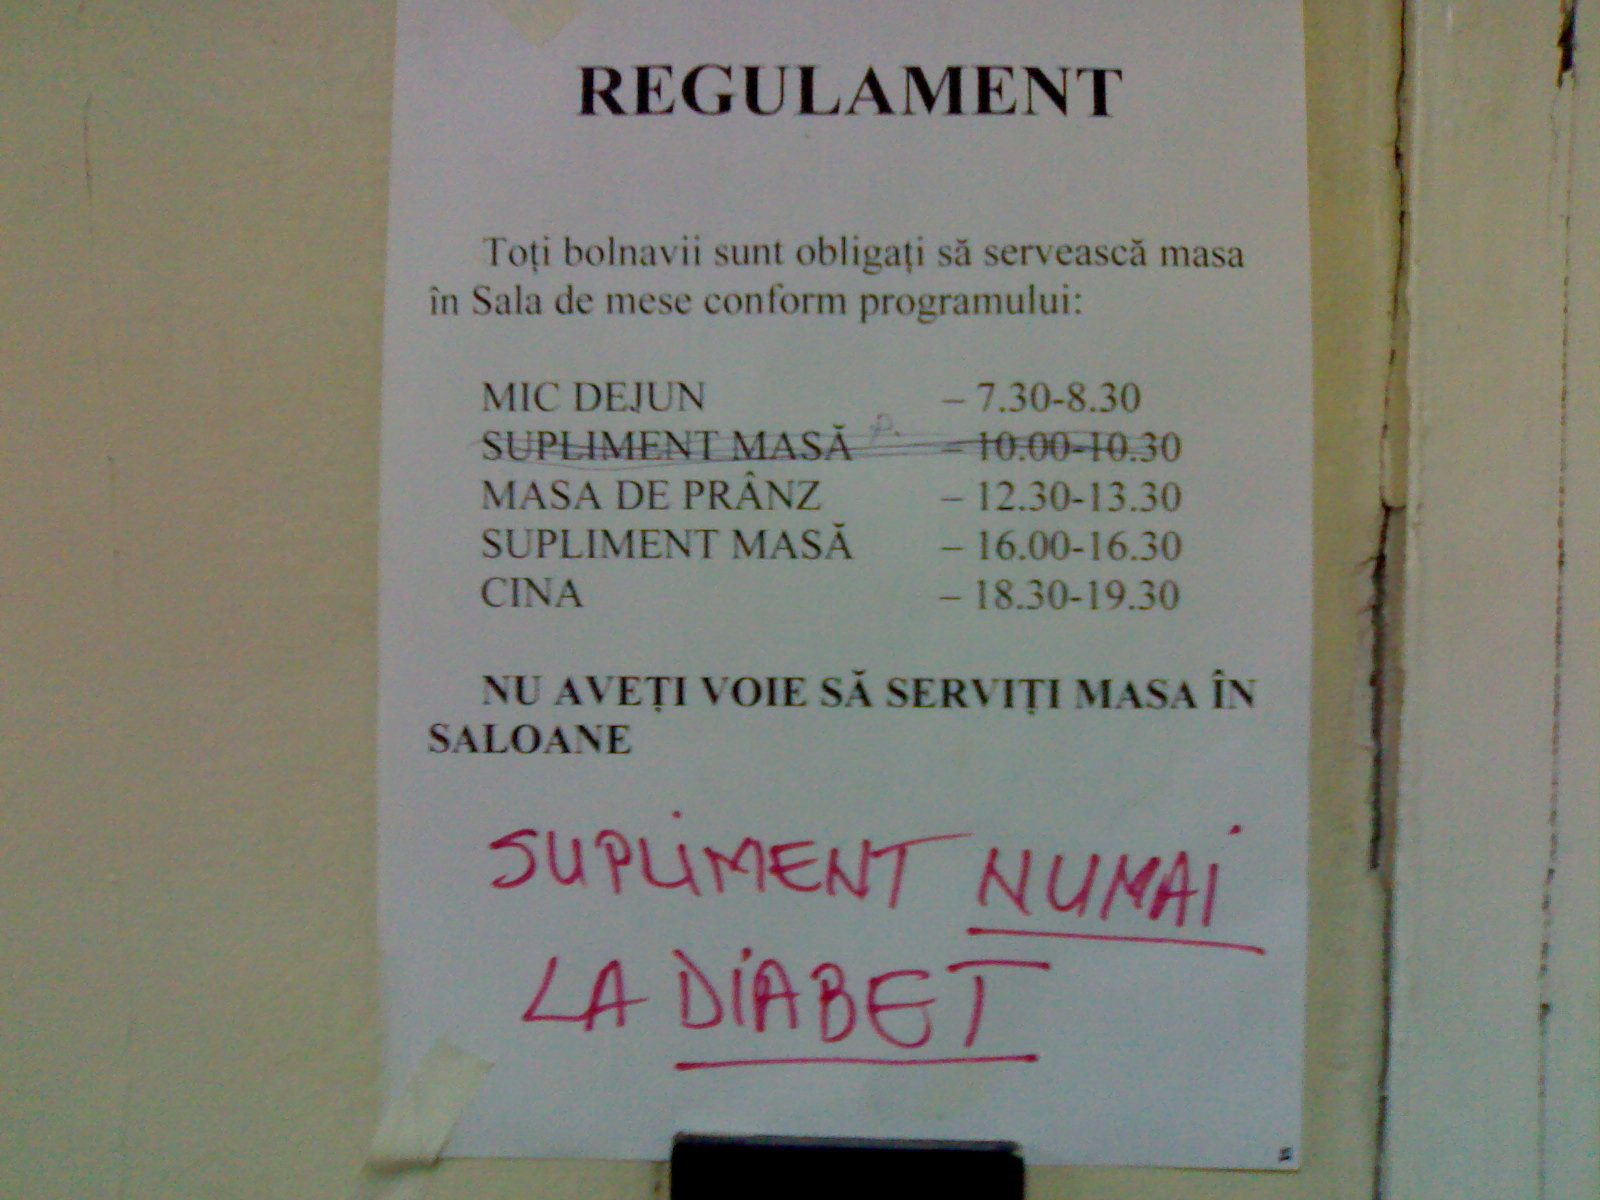 REGULAMENT
Toți bolnavii sunt obligați să servească masa
în Sala de mese conform programului:
MIC DEJUN – 7.30-8.30
SUPLIMENT MASĂ – 10.00-10.30
MASA DE PRÂNZ – 12.30-13.30
SUPLIMENT MASĂ – 16.00-16.30
CINA – 18.30-19.30
NU AVEȚI VOIE SĂ SERVIȚI MASA ÎN
SALOANE
SUPLIMENT NUMAI
LA DIABET